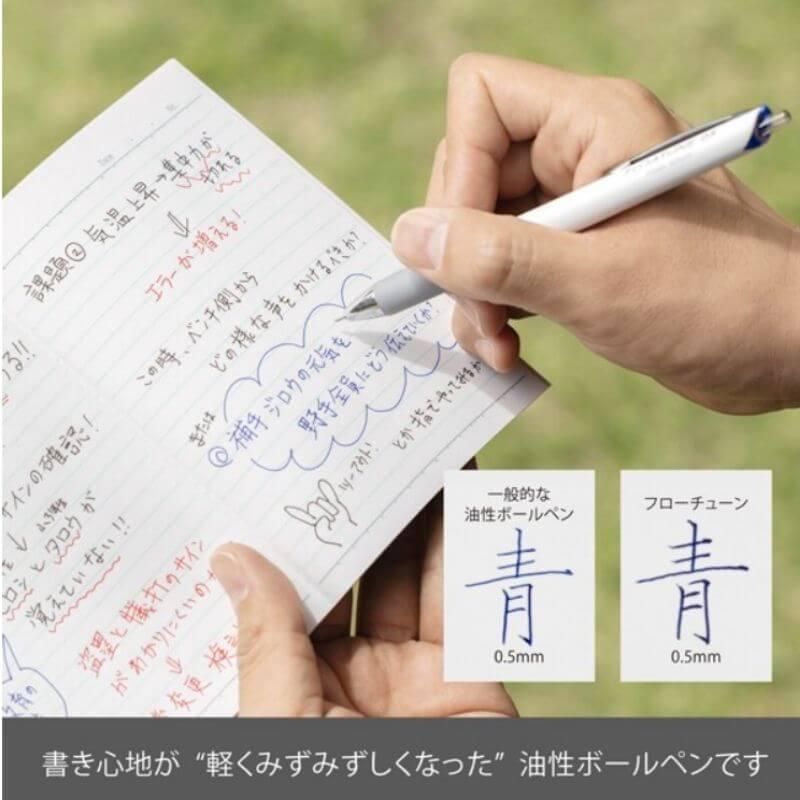 課題② 気温上昇→集中力が
切れる
↓
エラーが増える!
この時、ベンチ側から
どの様な声をかけるべきか?
または
◎補手ジロウの元気を
野手全員にどう伝えていくか?
ツーアウト!
とか指でやってみるか
る!!
インの確認!
ヒロシとタロウが
覚えていない!!
盗塁と犠打のサイン
がわかりにくいの
↓
変更
一般的な
油性ボールペン
青
0.5mm
フローチューン
青
0.5mm
書き心地が“軽くみずみずしくなった”油性ボールペンです